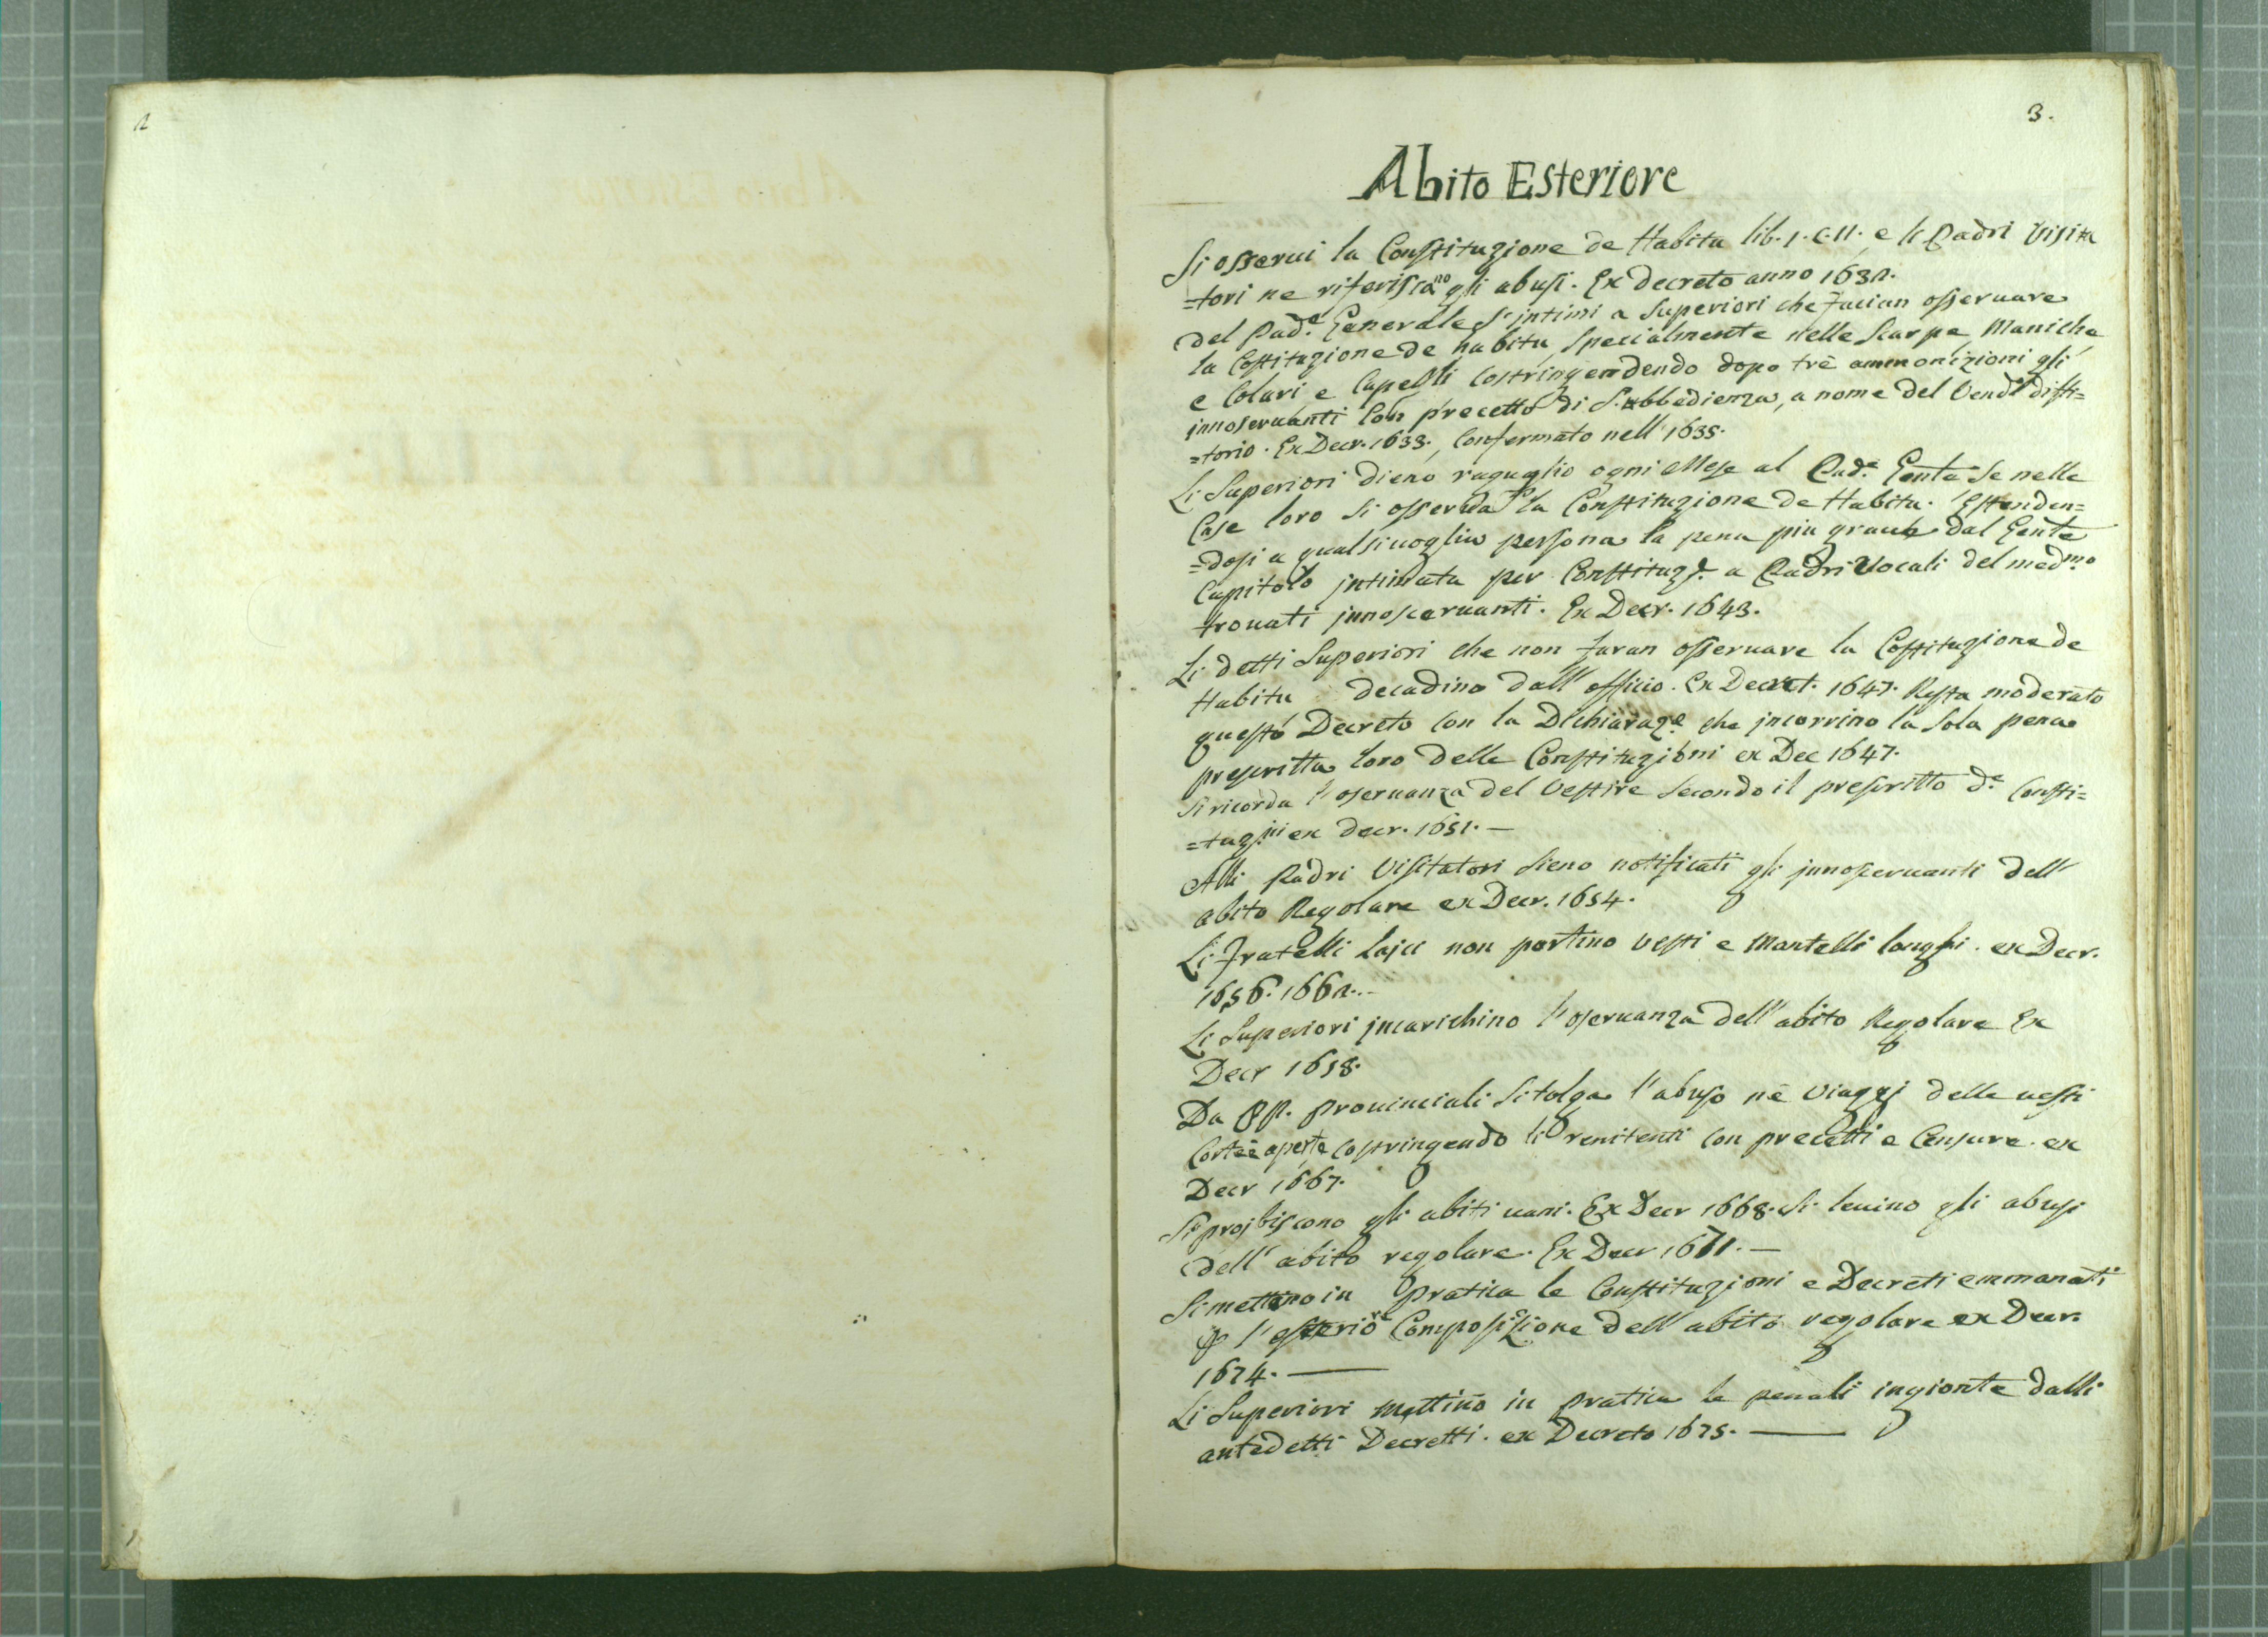 2
3.
Abito Esteriore
Si osserui la Constituzione de Habitu lib. 1. c. 11. e li Padri Visita
=tori ne riferiscano gli abusi. Ex decreto anno 1632.
del Pad.e Generale s'intimi a Superiori che facian osseruare
la Costituzione de habitu specialmente nelle Scarpe, Maniche,
e Colari, e Capelli costringendo dopo trè ammonizioni gli
innoseruanti con precetto di S. ubbedienza, a nome del Vend.e diffi=
=torio. Ex Decr. 1633., confermato nell' 1635.
Li Superiori dieno raguaglio ogni Mese al Pad.e Gente se nelle
Case loro si osserva la Constituzione de Habitu. Estenden=
=dosi a qualsiuoglia persona la pena più graue dal Gente
Capitolo intimata per Constituz.e a Padri Vocali del med.mo
trouati innoseruanti. Ex Decr. 1643.
Li detti Superiori che non faran osseruare la Costituzione de
Habitu decadino dall' officio. Ex Decret. 1647. Resta moderato
questo Decreto con la Dichiaraz.e che incorrino la sola pena
prescritta loro delle Constituzioni ex Dec 1647.
Si ricorda l'oseruanza del Vestire secondo il prescritto d.e Consti=
=tuz.ni ex decr. 1651. —
Alli Padri Visitatori sieno notificati gli innoseruanti dell'
abito Regolare ex Decr. 1654.
Li Fratelli Laici non portino vesti e Mantelli longhi. ex Decr.
1656. 1662. —
Li Superiori incarichino l'oseruanza dell' abito Regolare Ex
Decr 1658.
Da PP. Prouinciali si tolga l'abuso nè Viaggi delle uesti
Corte è aperte costringendo li renitenti con precetti e Censure. ex
Decr 1667.
Si proibiscono gli abiti uani. Ex Decr 1668. Si leuino gli abusi
dell' abito regolare. Ex Decr 1671. —
Si mettino in Pratica le Constituzioni e Decreti emmanati
p l'esterior Composizione dell' abito regolare ex Decr.
1674. —
Li Superiori mettino in pratica le penali ingionte dalli
antedetti Decretti. ex Decreto 1675. —